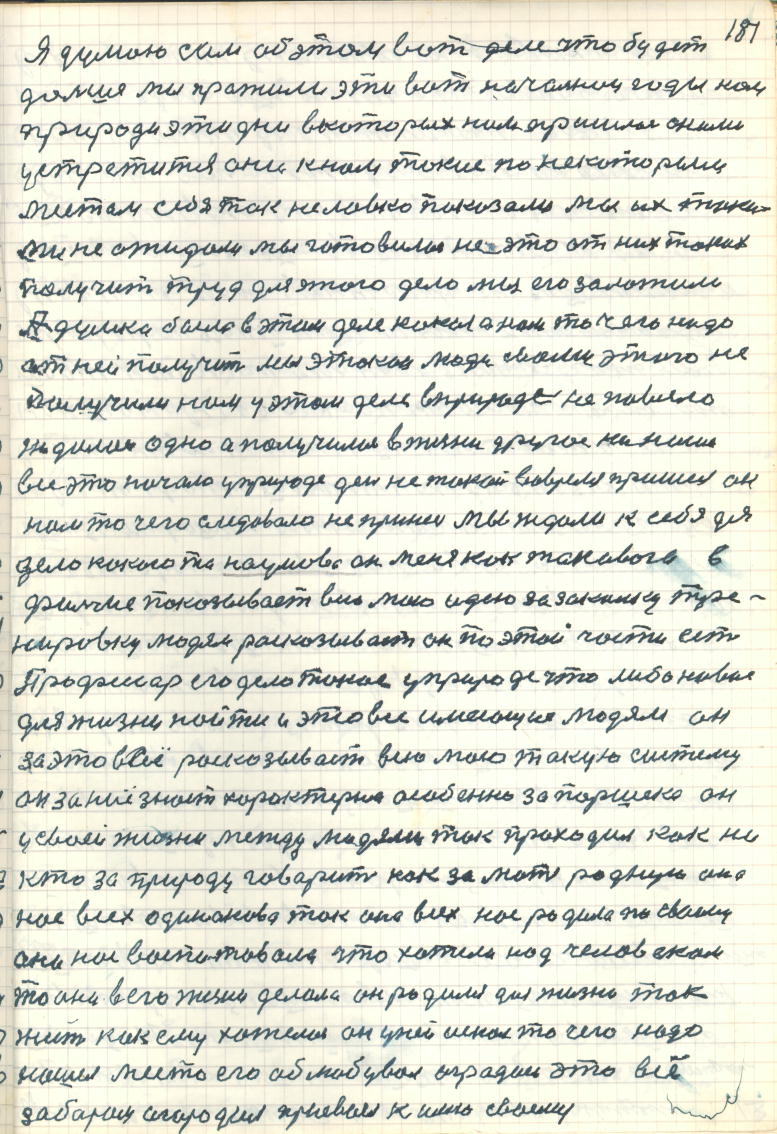 187
Я думаю сам об этом вот деле что будет
дальше мы прожили эти вот начальные годы нам
природа эти дни в которых нам пришлось с ними
устретится они к нам такие по некоторым
местам себя так неловко показали мы их таки-
ми не ожидали мы готовились не это от них таких
получит труд для этого дело мы его заложили
А думка была в этом деле какая нам то чего надо
от ней получит мы этакаи люди своем этого не
получили нам у этом деле в природе не повезло
ждали одно а получилось в жизни другое на наше
все это начало у природе ден не такой вовремя пришел он
нам то чего следовало не принес мы ждали к себя для
дело какого та наумова он меня как такавого в
филме показывает всю мою идею за закалку тре-
нировку людям расказывает он по этой части есть
Профессар его дело такое у природе что либо новое
для жизни найти и это все имеющие людям он
за это всё расказывает всю мою такую систему
он за неё знает характерна особенно за паршека он
у своей жизни между людями так проходил как ни
кто за природу говарить как за мать родную она
нас всех одинакова так она всех нас родила по своему
она нас воспитовала что хотела над человеком
то она в его жизни делала он родился для жизни так
жить как ему хотелось он у ней искал то чего надо
нашел место его облюбувал оградил это всё
забаром огородил привоил к имю своему